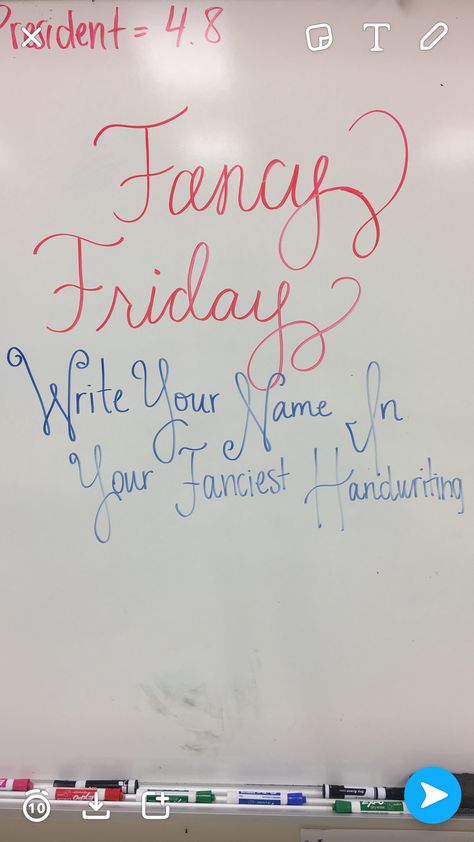 President = 4.8
Fancy
Friday
Write Your Name In
Your Fanciest Handwriting
10